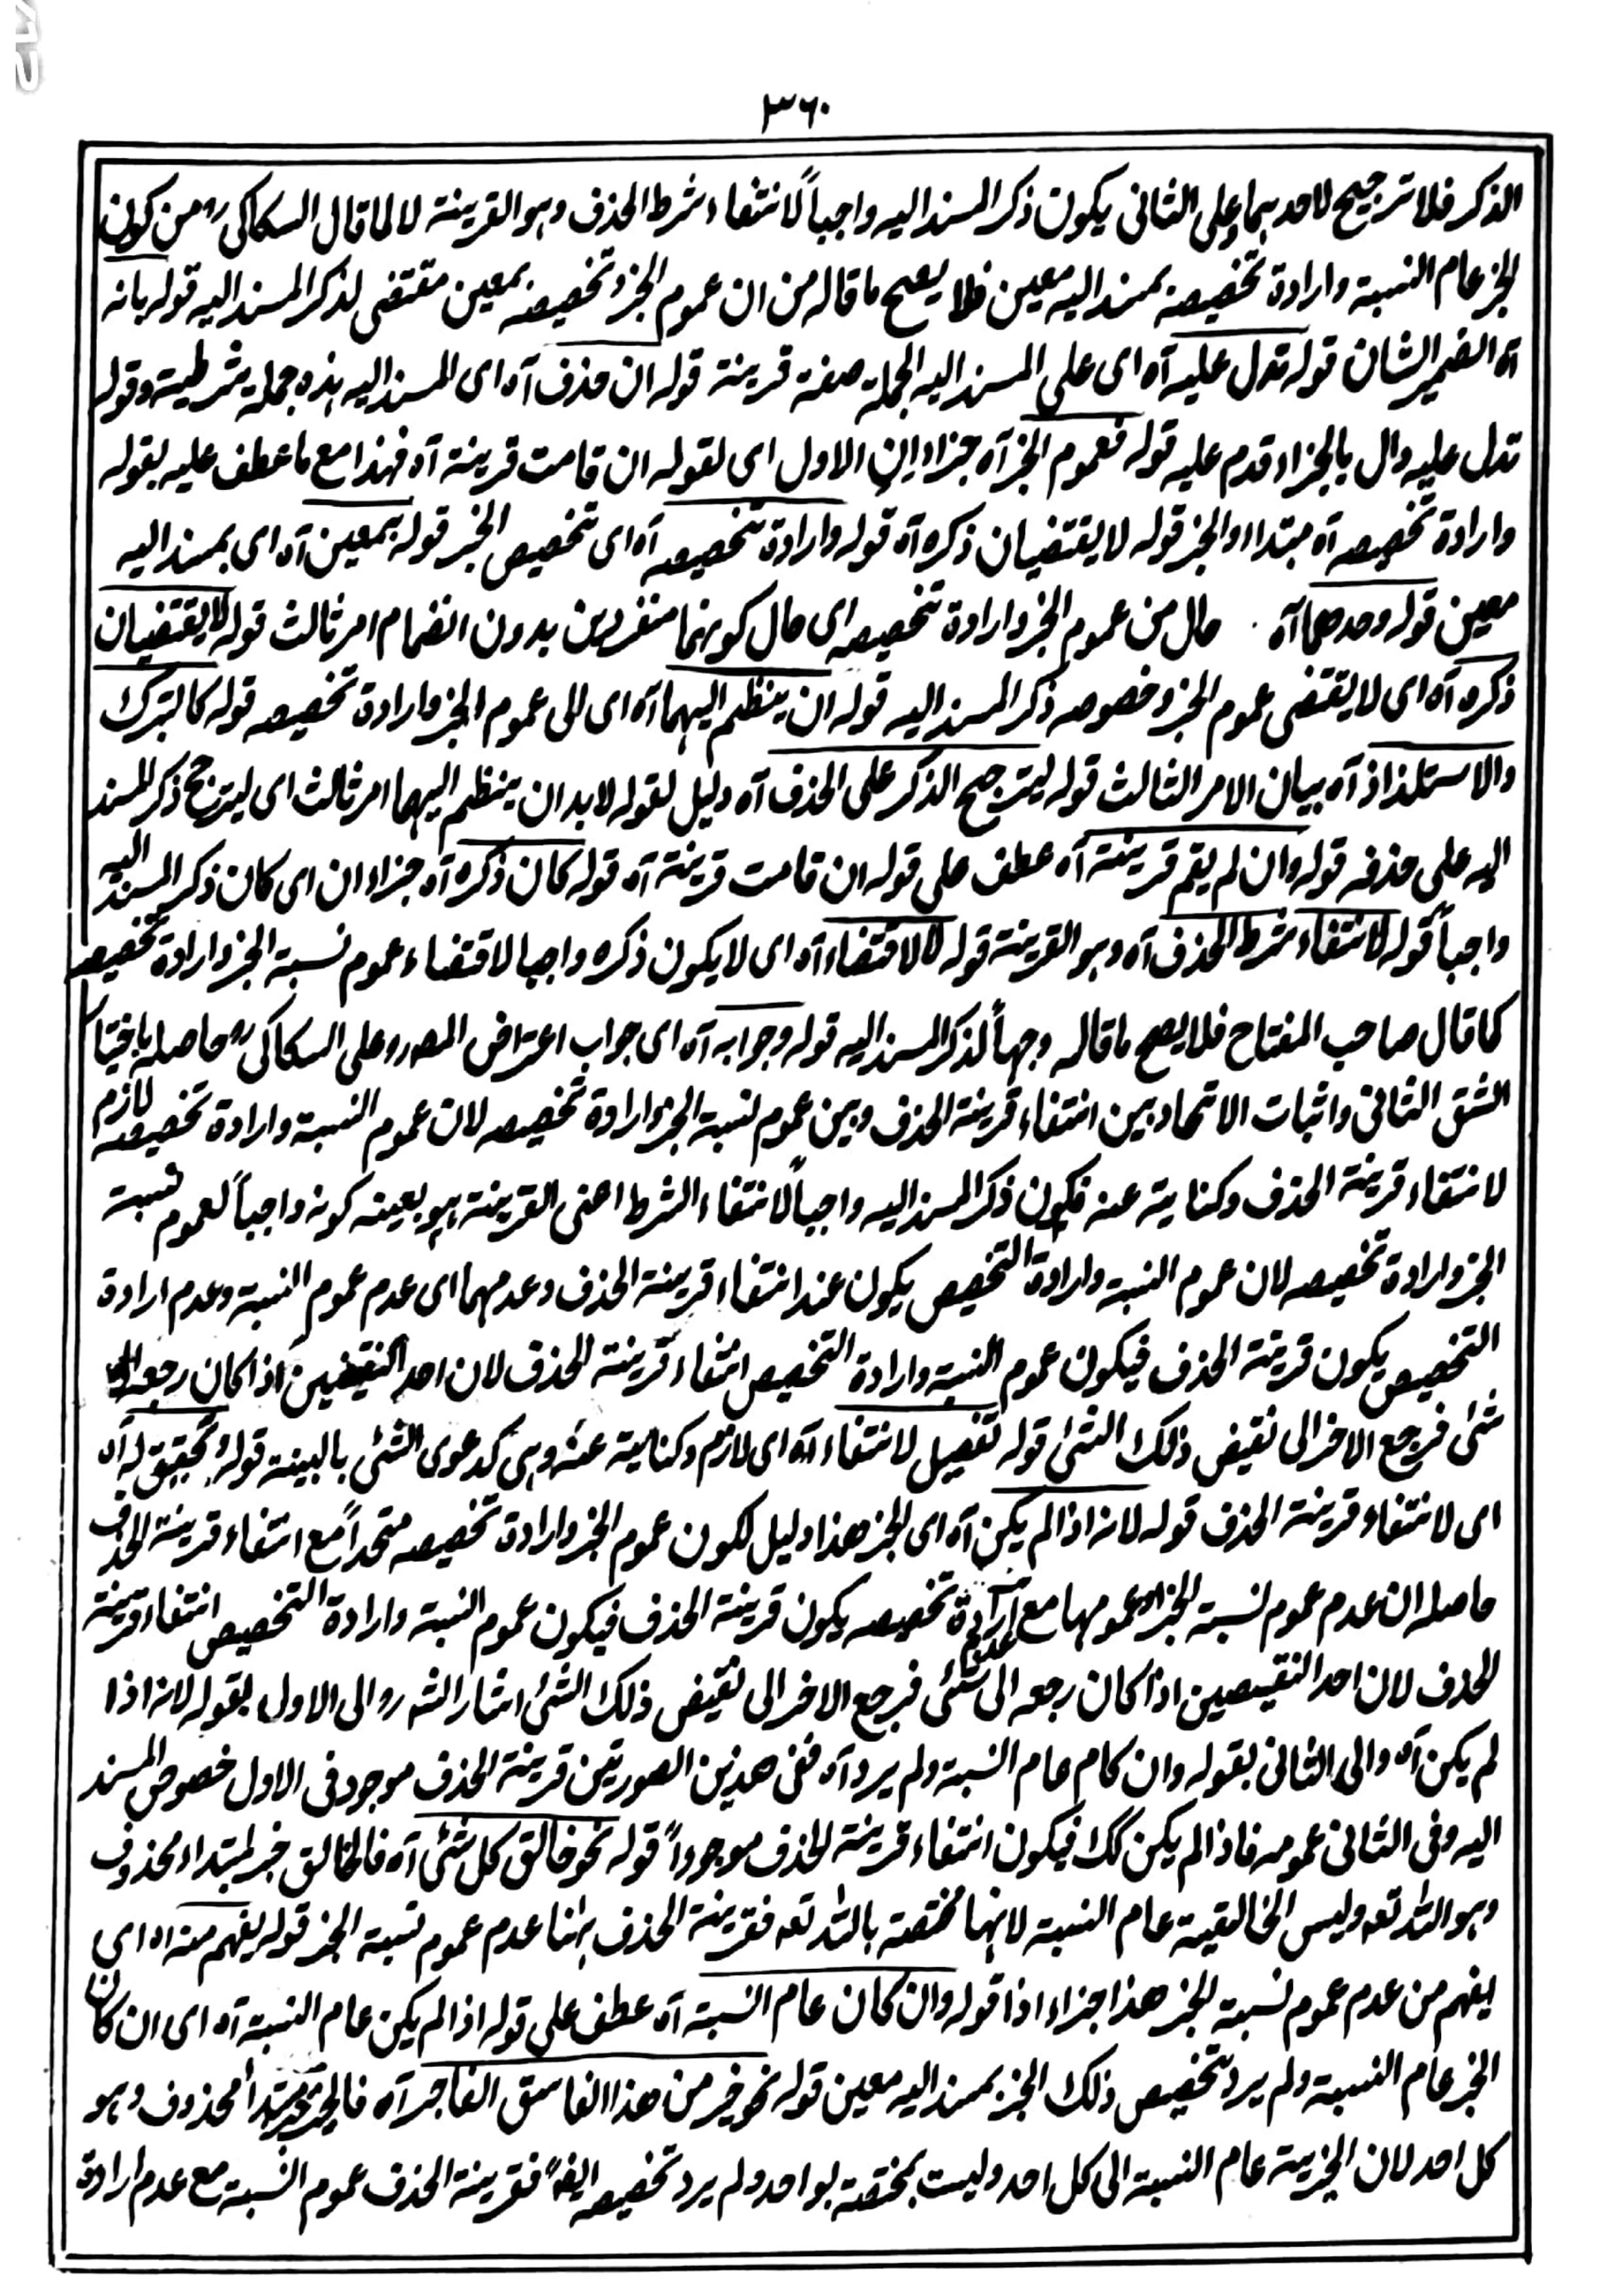 ٣٦٠
الذكر فلا ترجيح لاحدهما وعلى الثانى يكون ذكر المسند اليه واجباً لانتفاء شرط الحذف وهو القرينة لا لما قال السكاكى رہ من كون
الخبر عام النسبة وارادة تخصيصه بمسند اليه معين فلا يصح ما قاله من ان عموم الخبر وتخصيصه بمعين مقتضى لذكر المسند اليه قوله بانه
آه الضمير الشان قوله تدل عليه آه اى على المسند اليه الجملة صفة قرينة قوله ان حذف آه اى المسند اليه هذه جملة شرطية وقوله
تدل عليه دال بالجزاء قدم عليه قوله فعموم الخبر آه جزاء ان الاول اى لقوله ان قامت قرينة آه فهذا مع ما عطف عليه بقوله
وارادة تخصيصه آه مبتداء والخبر قوله لا يقتضيان ذكره آه قوله وارادة تخصيصه آه اى تخصيص الخبر قوله بمعين آه اى بمسند اليه
معين قوله وحدهما آه حال من عموم الخبر وارادة تخصيصه اى حال كونهما منفردين بدون انضمام امر ثالث قوله لا يقتضيان
ذكره آه اى لا يقتضى عموم الخبر وخصوصه ذكر المسند اليه قوله ان ينظم اليهما آه اى الى عموم الخبر وارادة تخصيصه قوله كالتبرك
والاستلذاذ آه بيان الامر الثالث قوله ليترجح الذكر على الحذف آه دليل لقوله لابد ان ينظم اليهما امر ثالث اى ليترجح ذكر المسند
اليه على حذفه قوله وان لم يقم قرينة آه عطف على قوله ان قامت قرينة آه قوله كان ذكره آه جزاء ان اى كان ذكر المسند اليه
واجباً قوله لانتفاء شرط الحذف آه وهو القرينة قوله لا لاقتضاء آه اى لا يكون ذكره واجبا لاقتضاء عموم نسبة الخبر وارادة تخصيصه
كما قال صاحب المفتاح فلا يصح ما قاله وجهاً لذكر المسند اليه قوله وجوابه آه اى جواب اعتراض المصر رو على السكاكى رہ حاصله باختيار
الشق الثانى واثبات الاتحاد بين انتفاء قرينة الحذف وبين عموم نسبة الخبر وارادة تخصيصه لان عموم النسبة وارادة تخصيصه لازم
لانتفاء قرينة الحذف وكناية عنه فكون ذكر المسند اليه واجباً لانتفاء الشرط اعنى القرينة هو بعينه كونه واجباً لعموم نسبة
الخبر وارادة تخصيصه لان عموم النسبة وارادة التخصيص يكون عند انتفاء قرينة الحذف وعدمهما اى عدم عموم النسبة وعدم ارادة
التخصيص يكون قرينة الحذف فيكون عموم النسبة وارادة التخصيص انتفاء قرينة الحذف لان احد النقيضين اذا كان رجعه الى
شئ فرجع الاخر الى نقيض ذلك الشئ قوله تفصيل لانتفاء آه اى لازم وكناية عنه وهى كدعوى الشئ بالبينة قوله وتحقيق له آه
اى لانتفاء قرينة الحذف قوله لانه اذا لم يكن آه اى الخبر هذا دليل لكون عموم الخبر وارادة تخصيصه متحداً مع انتفاء قرينة الحذف
حاصله ان عدم عموم نسبة الخبر او عمومها مع عدم ارادة تخصيصه يكون قرينة الحذف فيكون عموم النسبة وارادة التخصيص انتفاء قرينة
الحذف لان احد النقيضين اذا كان رجعه الى شئ فرجع الاخر الى نقيض ذلك الشئ اشار الشه رو الى الاول بقوله لانه اذا
لم يكن آه والى الثانى بقوله وان كام عام النسبة ولم يرد آه ففى هذين الصورتين قرينة الحذف موجود فى الاول خصوص المسند
اليه وفى الثانى عمومه فاذا لم يكن كك فيكون انتفاء قرينة الحذف موجوداً قوله نحو خالق كل شئ آه فالخالق خبر لمبتداء محذوف
وهو الله تعه وليس الخالقية عام النسبة لانها مختصة بالله تعه فقرينة الحذف ههنا عدم عموم نسبة الخبر قوله يفهم منه اه اى
يفهم من عدم عموم نسبة الخبر هذا جزاء اذا قوله وان كان عام النسبة آه عطف على قوله اذا لم يكن عام النسبة آه اى ان كان
الخبر عام النسبة ولم يرد تخصيص ذلك الخبر بمسند اليه معين قوله نحو خير من هذا الفاسق الفاجر آه فالخير خبر مبتدأ محذوف وهو
كل احد لان الخيرية عام النسبة الى كل احد وليست بمختصة بواحد ولم يرد تخصيصه ايضاً فقرينة الحذف عموم النسبة مع عدم ارادة